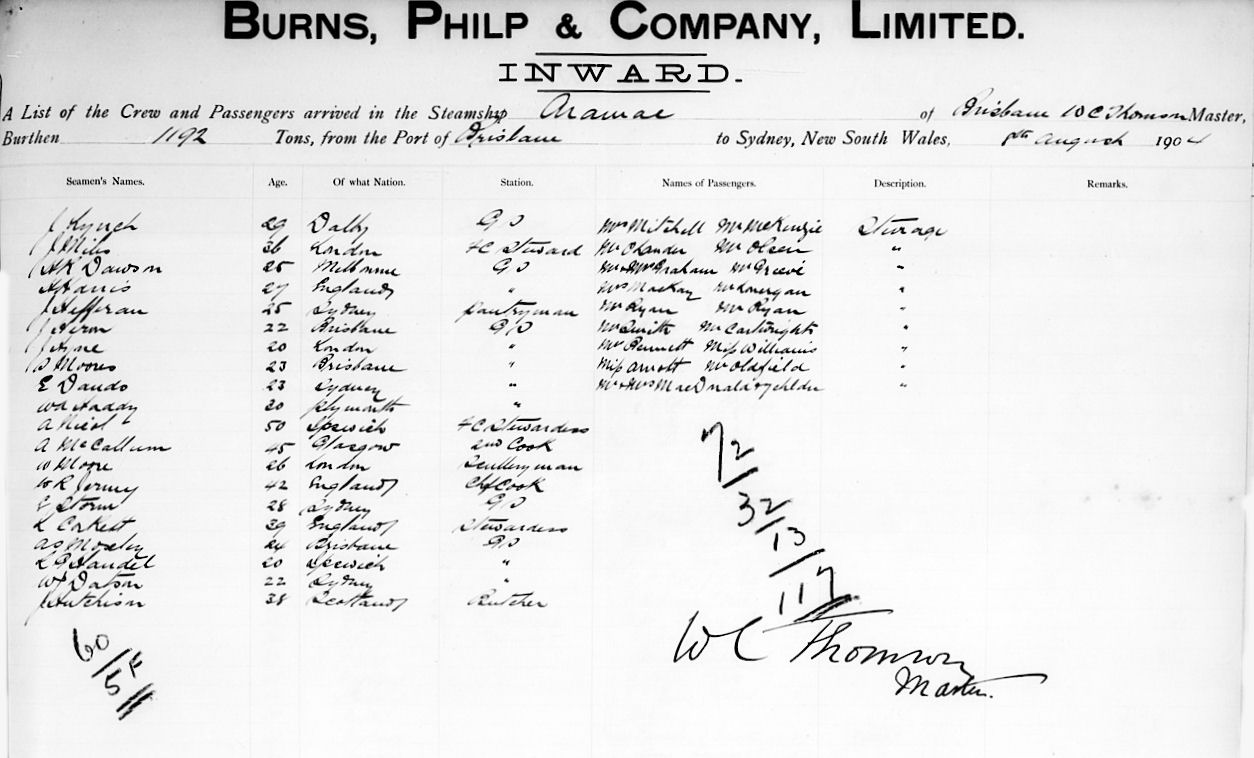 BURNS, PHILP & COMPANY, LIMITED.
INWARD.
A List of the Crew and Passengers arrived in the Steamship Aramac of Brisbane W C Thomson Master,
Burthen 1192 Tons, from the Port of Brisbane to Sydney, New South Wales, August 1904
Seamen's Names. Age. Of what Nation. Station. Names of Passengers. Description. Remarks.
J Lynch 29 Dalby G S Mrs Mitchell Mr McKenzie Steerage
J Mills 36 London F C Steward Mr Olander Mr Olsen "
A K Dawson 25 Melbourne G S Mr & Mrs Graham Mr Grieve "
A Harris 27 England " Mrs Mackay Mr Lonergan "
J Heffernan 25 Sydney Pantryman Mr Ryan Mr Ryan "
J Heron 22 Brisbane G S Mr Smith Mr Cartwright "
J Hyne 20 London " Mr Bennett Miss Williams "
S Moores 23 Brisbane " Miss Arnott Mr Oldfield "
E Dands 23 Sydney " Mr & Mrs MacDonald & 7 childn "
Haddy 20 Plymouth "
A Nicol 50 Ipswich F C Stewardess
A McCallum 45 Glasgow 2nd Cook
W Moore 26 London Sculleryman
W R Jermy 42 England Chf Cook
E Storm 28 Sydney G S
L Corkett 39 England Stewardess
A S Moxley 24 Brisbane G S
L G Handel 20 Ipswich "
W J Datson 22 Sydney "
J Hutchison 38 Scotland Butcher
72
32
13
117
60
5 F
W C Thomson
Master.